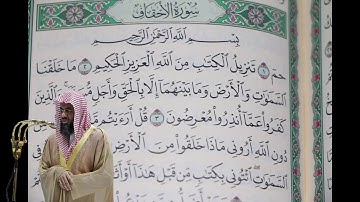 سُورَةُ الأَحْقَافِ
بِسْمِ اللَّهِ الرَّحْمَٰنِ الرَّحِيمِ
حمٓ ١ تَنزِيلُ الْكِتَٰبِ مِنَ اللَّهِ الْعَزِيزِ الْحَكِيمِ ٢ مَا خَلَقْنَا
السَّمَٰوَٰتِ وَالْأَرْضَ وَمَا بَيْنَهُمَآ إِلَّا بِالْحَقِّ وَأَجَلٍ مُّسَمًّى وَالَّذِينَ
كَفَرُوا۟ عَمَّآ أُنذِرُوا۟ مُعْرِضُونَ ٣ قُلْ أَرَءَيْتُم
دُونِ اللَّهِ أَرُونِى مَاذَا خَلَقُوا۟ مِنَ الْأَرْضِ
السَّمَٰوَٰتِ ائْتُونِى بِكِتَٰبٍ مِّن قَبْلِ هَٰذَآ أَوْ أَثَٰ